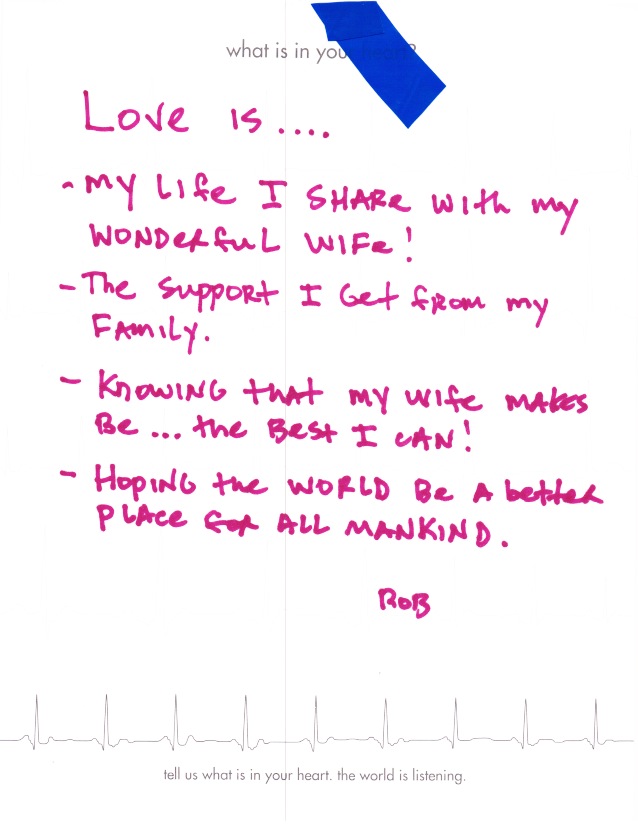 what is in your heart?
Love is....
- My Life I SHARe with my
WONDeRfuL WIFe!
- The Support I Get from my
FAMILY.
- KNOWING that my Wife MAKES
Be ... the Best I CAN!
- HOPING the WORLD Be A better
PLACe for ALL MANKIND.
ROB
tell us what is in your heart. the world is listening.